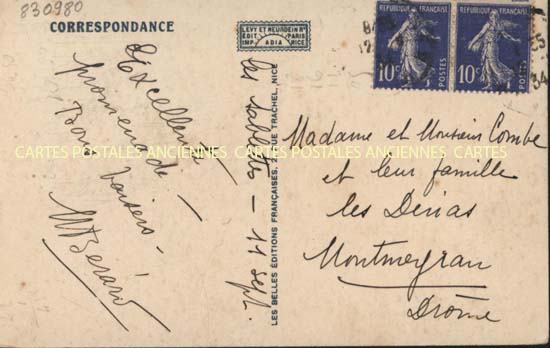 830980
CORRESPONDANCE
LEVY ET NEURDEIN Rns
EDIT. PARIS
IMP. ADIA NICE
Excellente
promenade
Bons baisers
MBérard
11 sept.
LES BELLES ÉDITIONS FRANÇAISES, RUE TRACHEL, NICE
10c POSTES
10c POSTES
34
Madame et Monsieur Combe
et leur famille
les Dérias
Montmeyran
Drôme
CARTES POSTALES ANCIENNES CARTES POSTALES ANCIENNES CARTES